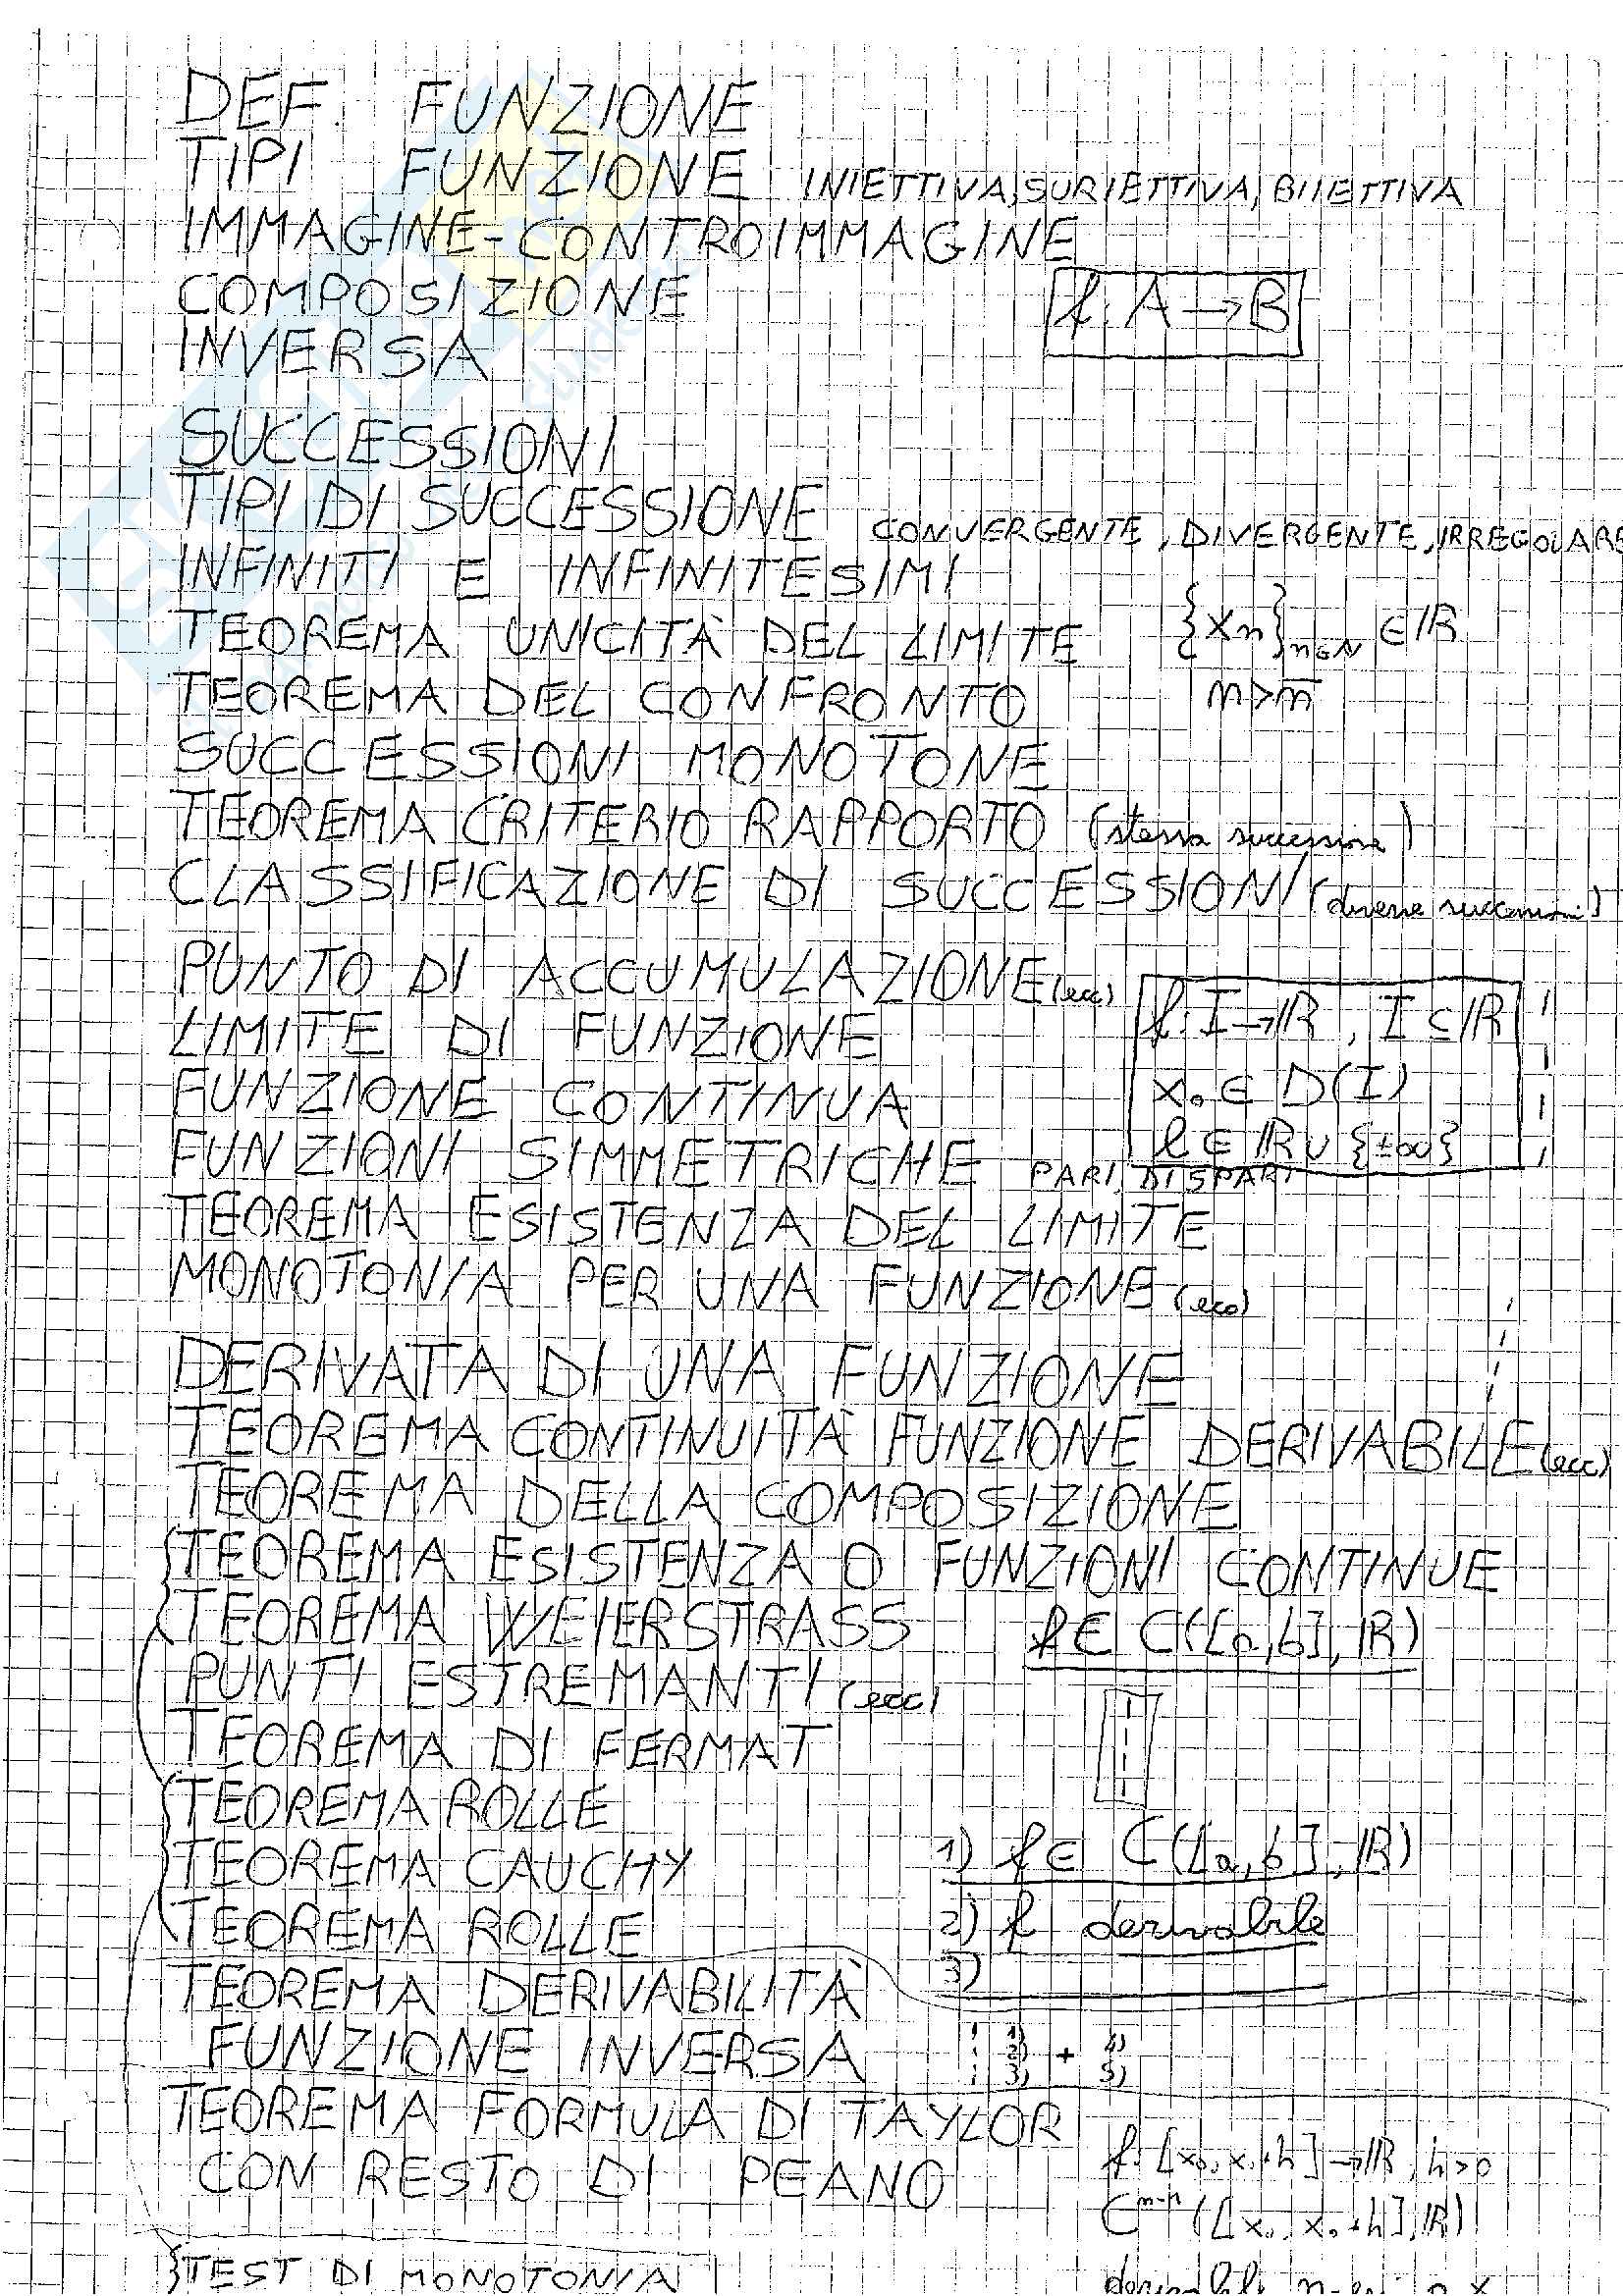 DEF. FUNZIONE
TIPI FUNZIONE INIETTIVA, SURIETTIVA, BIIETTIVA
IMMAGINE-CONTROIMMAGINE
COMPOSIZIONE f: A → B
INVERSA
SUCCESSIONI
TIPI DI SUCCESSIONE CONVERGENTE, DIVERGENTE, IRREGOLARE
INFINITI E INFINITESIMI
TEOREMA UNICITÀ DEL LIMITE {xn}n∈N ∈ℝ
TEOREMA DEL CONFRONTO n>n̅
SUCCESSIONI MONOTONE
TEOREMA CRITERIO RAPPORTO (stessa successione)
CLASSIFICAZIONE DI SUCCESSIONI (diverse successioni)
PUNTO DI ACCUMULAZIONE (ecc)
LIMITE DI FUNZIONE f: I→ℝ, I⊆ℝ
FUNZIONE CONTINUA x₀ ∈ D(I)
FUNZIONI SIMMETRICHE PARI, DISPARI l∈ℝ∪{±∞}
TEOREMA ESISTENZA DEL LIMITE
MONOTONIA PER UNA FUNZIONE (ecc)
DERIVATA DI UNA FUNZIONE
TEOREMA CONTINUITÀ FUNZIONE DERIVABILE (ecc)
TEOREMA DELLA COMPOSIZIONE
TEOREMA ESISTENZA 0 FUNZIONI CONTINUE
TEOREMA WEIERSTRASS f∈ C([a,b], ℝ)
PUNTI ESTREMANTI (ecc)
TEOREMA DI FERMAT
TEOREMA ROLLE
TEOREMA CAUCHY 1) f∈ C([a,b], ℝ)
TEOREMA ROLLE 2) f derivabile
3)
TEOREMA DERIVABILITÀ
FUNZIONE INVERSA 1) 2) 3) + 4) 5)
TEOREMA FORMULA DI TAYLOR
CON RESTO DI PEANO f: [x₀, x₀+h]→ℝ, h>0
C^n-1([x₀, x₀+h], ℝ)
TEST DI MONOTONIA